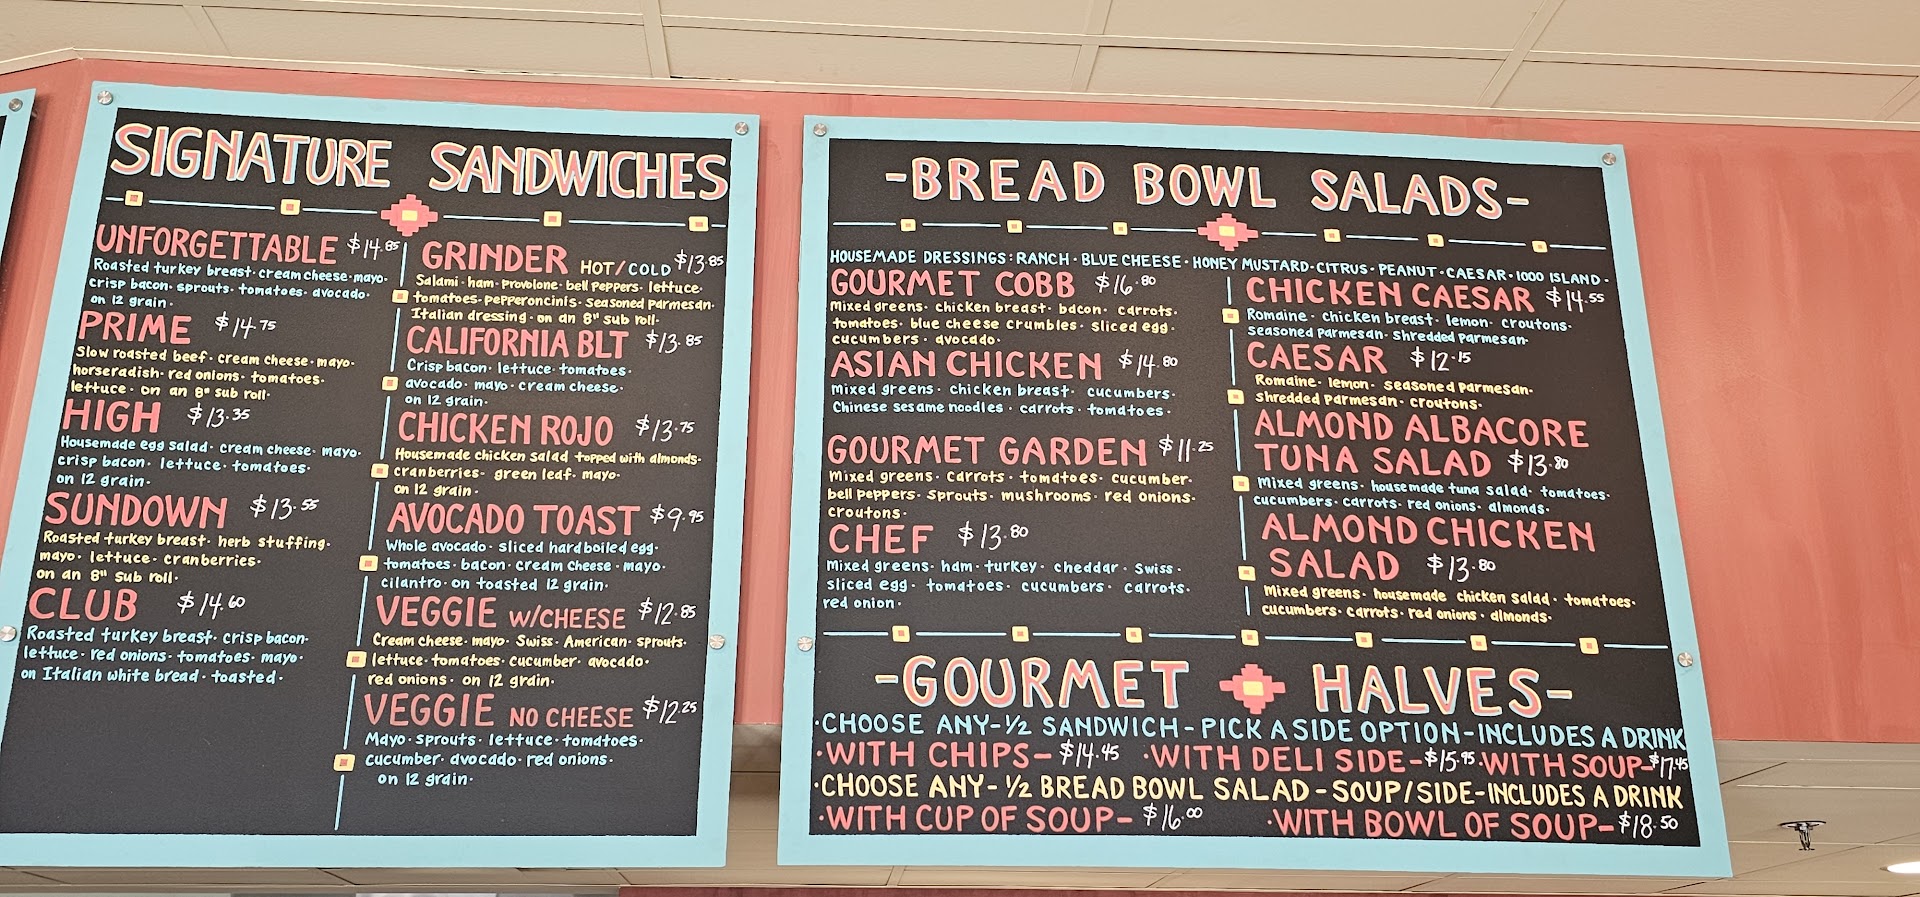 SIGNATURE SANDWICHES
UNFORGETTABLE $14.85
Roasted turkey breast · cream cheese · mayo ·
crisp bacon · sprouts · tomatoes · avocado ·
on 12 grain ·
PRIME $14.75
Slow roasted beef · cream cheese · mayo ·
horseradish · red onions · tomatoes ·
lettuce · on an 8" sub roll ·
HIGH $13.35
Housemade egg salad · cream cheese · mayo ·
crisp bacon · lettuce · tomatoes ·
on 12 grain ·
SUNDOWN $13.55
Roasted turkey breast · herb stuffing ·
mayo · lettuce · cranberries ·
on an 8" sub roll ·
CLUB $14.60
Roasted turkey breast · crisp bacon ·
lettuce · red onions · tomatoes · mayo ·
on Italian white bread · toasted ·
GRINDER HOT/COLD $13.85
Salami · ham · provolone · bell peppers · lettuce ·
tomatoes · pepperoncinis · seasoned parmesan ·
Italian dressing · on an 8" sub roll ·
CALIFORNIA BLT $13.85
Crisp bacon · lettuce · tomatoes ·
avocado · mayo · cream cheese ·
on 12 grain ·
CHICKEN ROJO $13.75
Housemade chicken salad topped with almonds ·
cranberries · green leaf · mayo ·
on 12 grain ·
AVOCADO TOAST $9.95
Whole avocado · sliced hard boiled egg ·
tomatoes · bacon · cream cheese · mayo ·
cilantro · on toasted 12 grain ·
VEGGIE W/CHEESE $12.85
Cream cheese · mayo · Swiss · American · sprouts ·
lettuce · tomatoes · cucumber · avocado ·
red onions · on 12 grain ·
VEGGIE NO CHEESE $12.25
Mayo · sprouts · lettuce · tomatoes ·
cucumber · avocado · red onions ·
on 12 grain ·
-BREAD BOWL SALADS-
HOUSEMADE DRESSINGS: RANCH · BLUE CHEESE · HONEY MUSTARD · CITRUS · PEANUT · CAESAR · 1000 ISLAND ·
GOURMET COBB $16.80
Mixed greens · chicken breast · bacon · carrots ·
tomatoes · blue cheese crumbles · sliced egg ·
cucumbers · avocado ·
ASIAN CHICKEN $14.80
Mixed greens · chicken breast · cucumbers ·
Chinese sesame noodles · carrots · tomatoes ·
GOURMET GARDEN $11.25
Mixed greens · carrots · tomatoes · cucumber ·
bell peppers · sprouts · mushrooms · red onions ·
croutons ·
CHEF $13.80
Mixed greens · ham · turkey · cheddar · swiss ·
sliced egg · tomatoes · cucumbers · carrots ·
red onion ·
CHICKEN CAESAR $14.55
Romaine · chicken breast · lemon · croutons ·
seasoned parmesan · shredded parmesan ·
CAESAR $12.15
Romaine · lemon · seasoned parmesan ·
shredded parmesan · croutons ·
ALMOND ALBACORE
TUNA SALAD $13.80
Mixed greens · housemade tuna salad · tomatoes ·
cucumbers · carrots · red onions · almonds ·
ALMOND CHICKEN
SALAD $13.80
Mixed greens · housemade chicken salad · tomatoes ·
cucumbers · carrots · red onions · almonds ·
-GOURMET HALVES-
·CHOOSE ANY-½ SANDWICH-PICK A SIDE OPTION-INCLUDES A DRINK
·WITH CHIPS-$14.45 ·WITH DELI SIDE-$15.95 ·WITH SOUP-$17.45
·CHOOSE ANY-½ BREAD BOWL SALAD-SOUP/SIDE-INCLUDES A DRINK
·WITH CUP OF SOUP-$16.00 ·WITH BOWL OF SOUP-$18.50